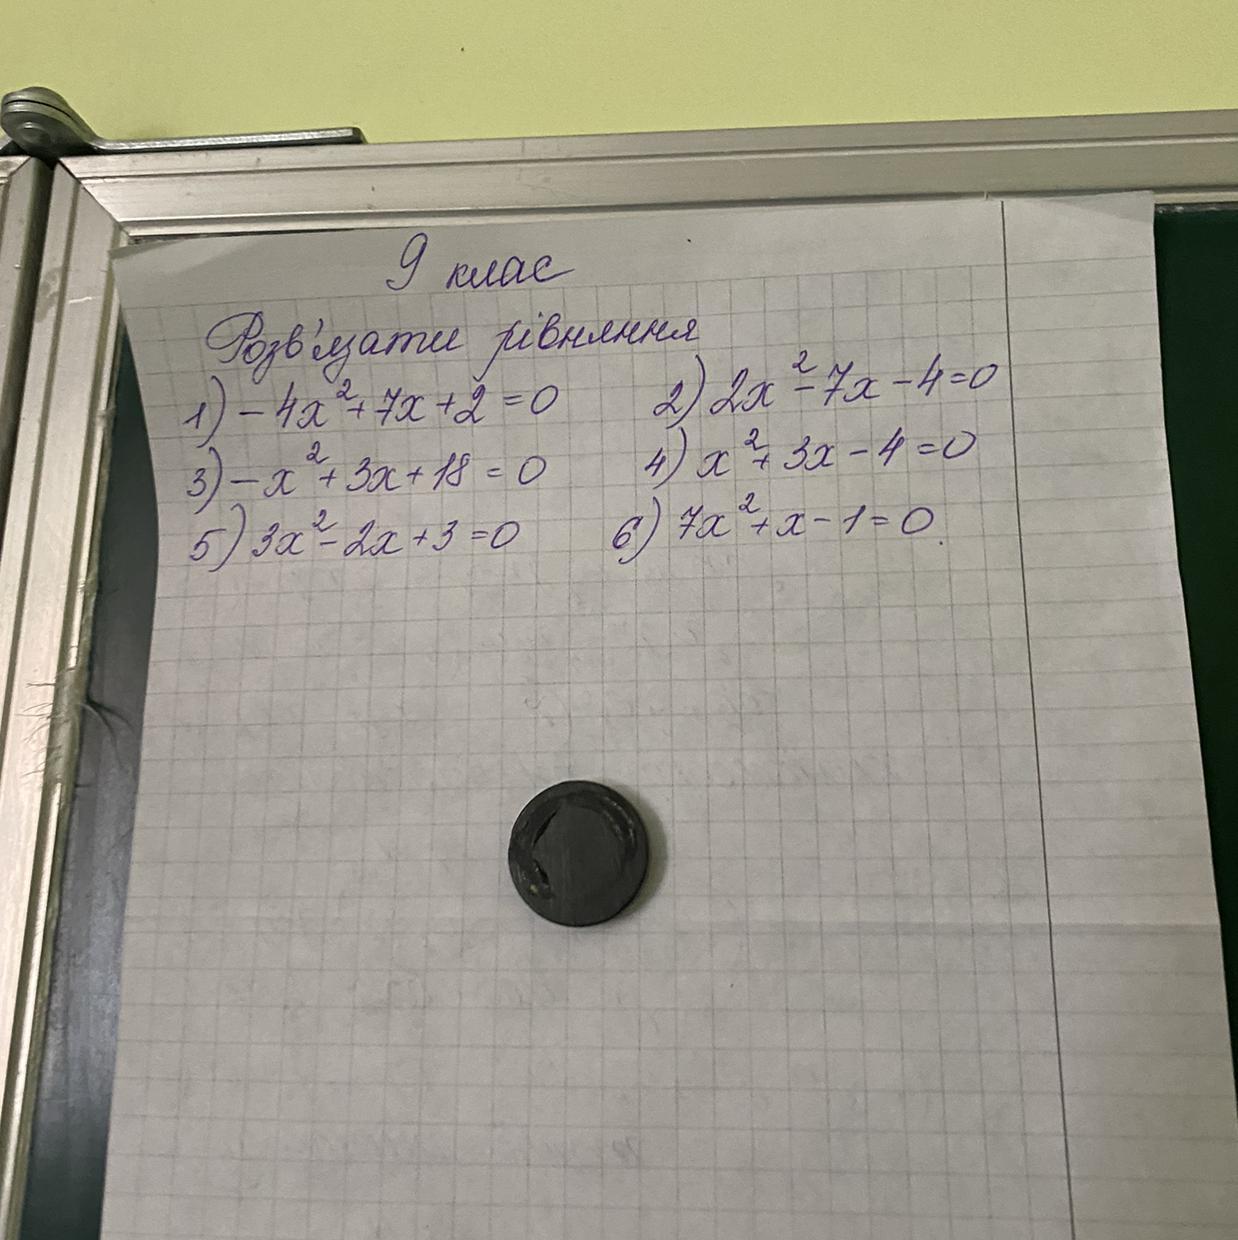 9 клас
Розв'язати рівняння
1) -4x²+7x+2=0 2) 2x²-7x-4=0
3) -x²+3x+18=0 4) x²+3x-4=0
5) 3x²-2x+3=0 6) 7x²+x-1=0.